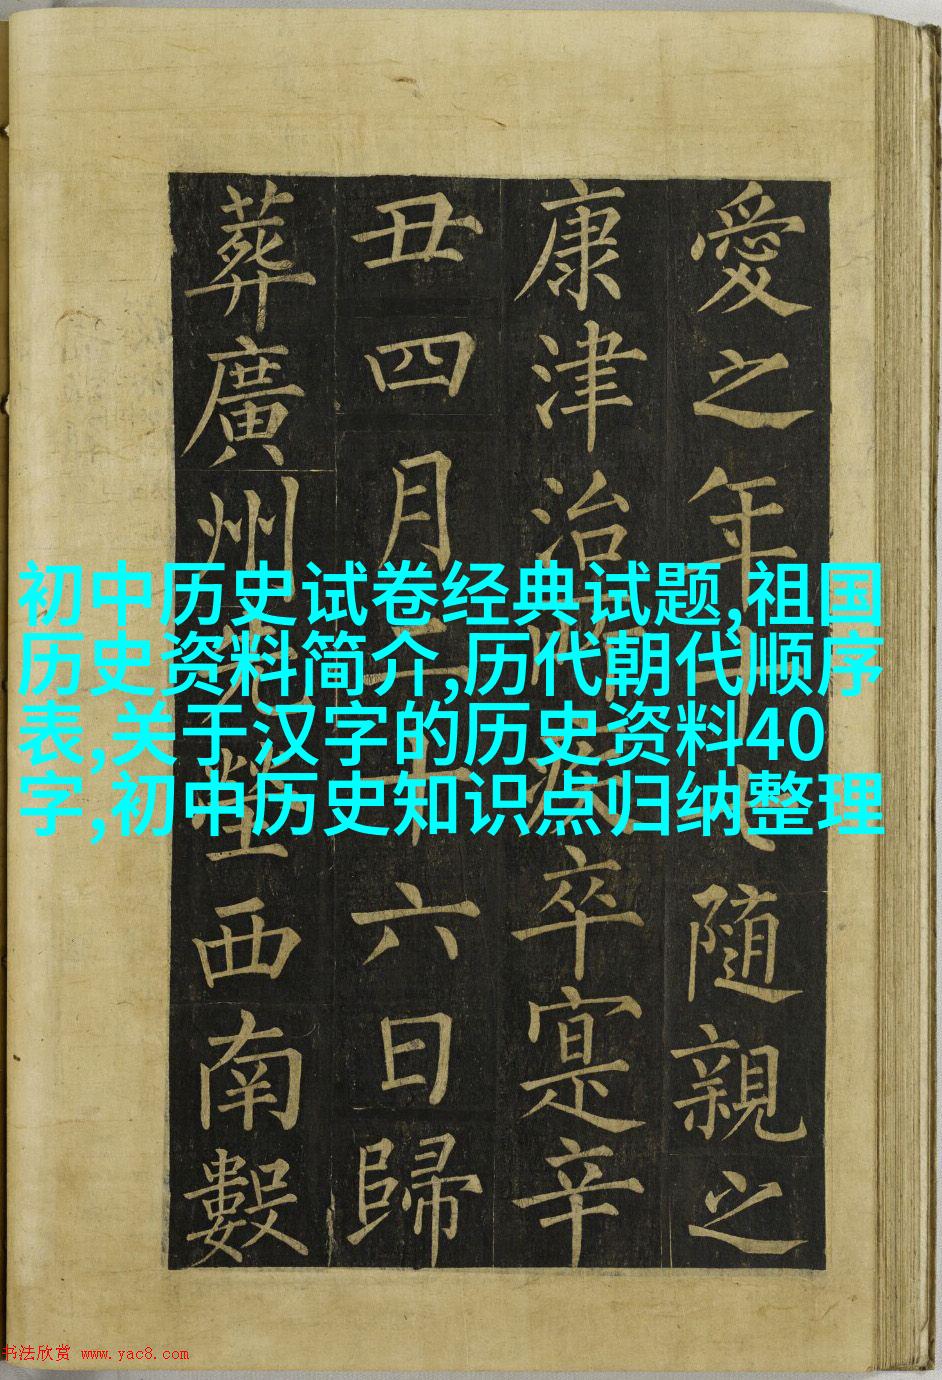 愛之年隨親之
康津治卒寔辛
丑四月二十六日歸
葬廣州西南數
初中历史试卷经典试题,祖国
历史资料简介,历代朝代顺序
表,关于汉字的历史资料40
字,初中历史知识点归纳整理
书法欣赏 www.yac8.com